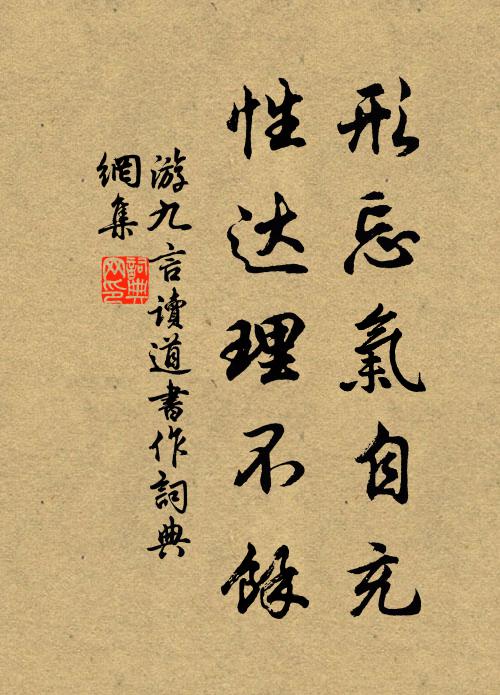 形忘氣自充
性达理不餘
游九言讀道書作詞典
網集
詞典網印